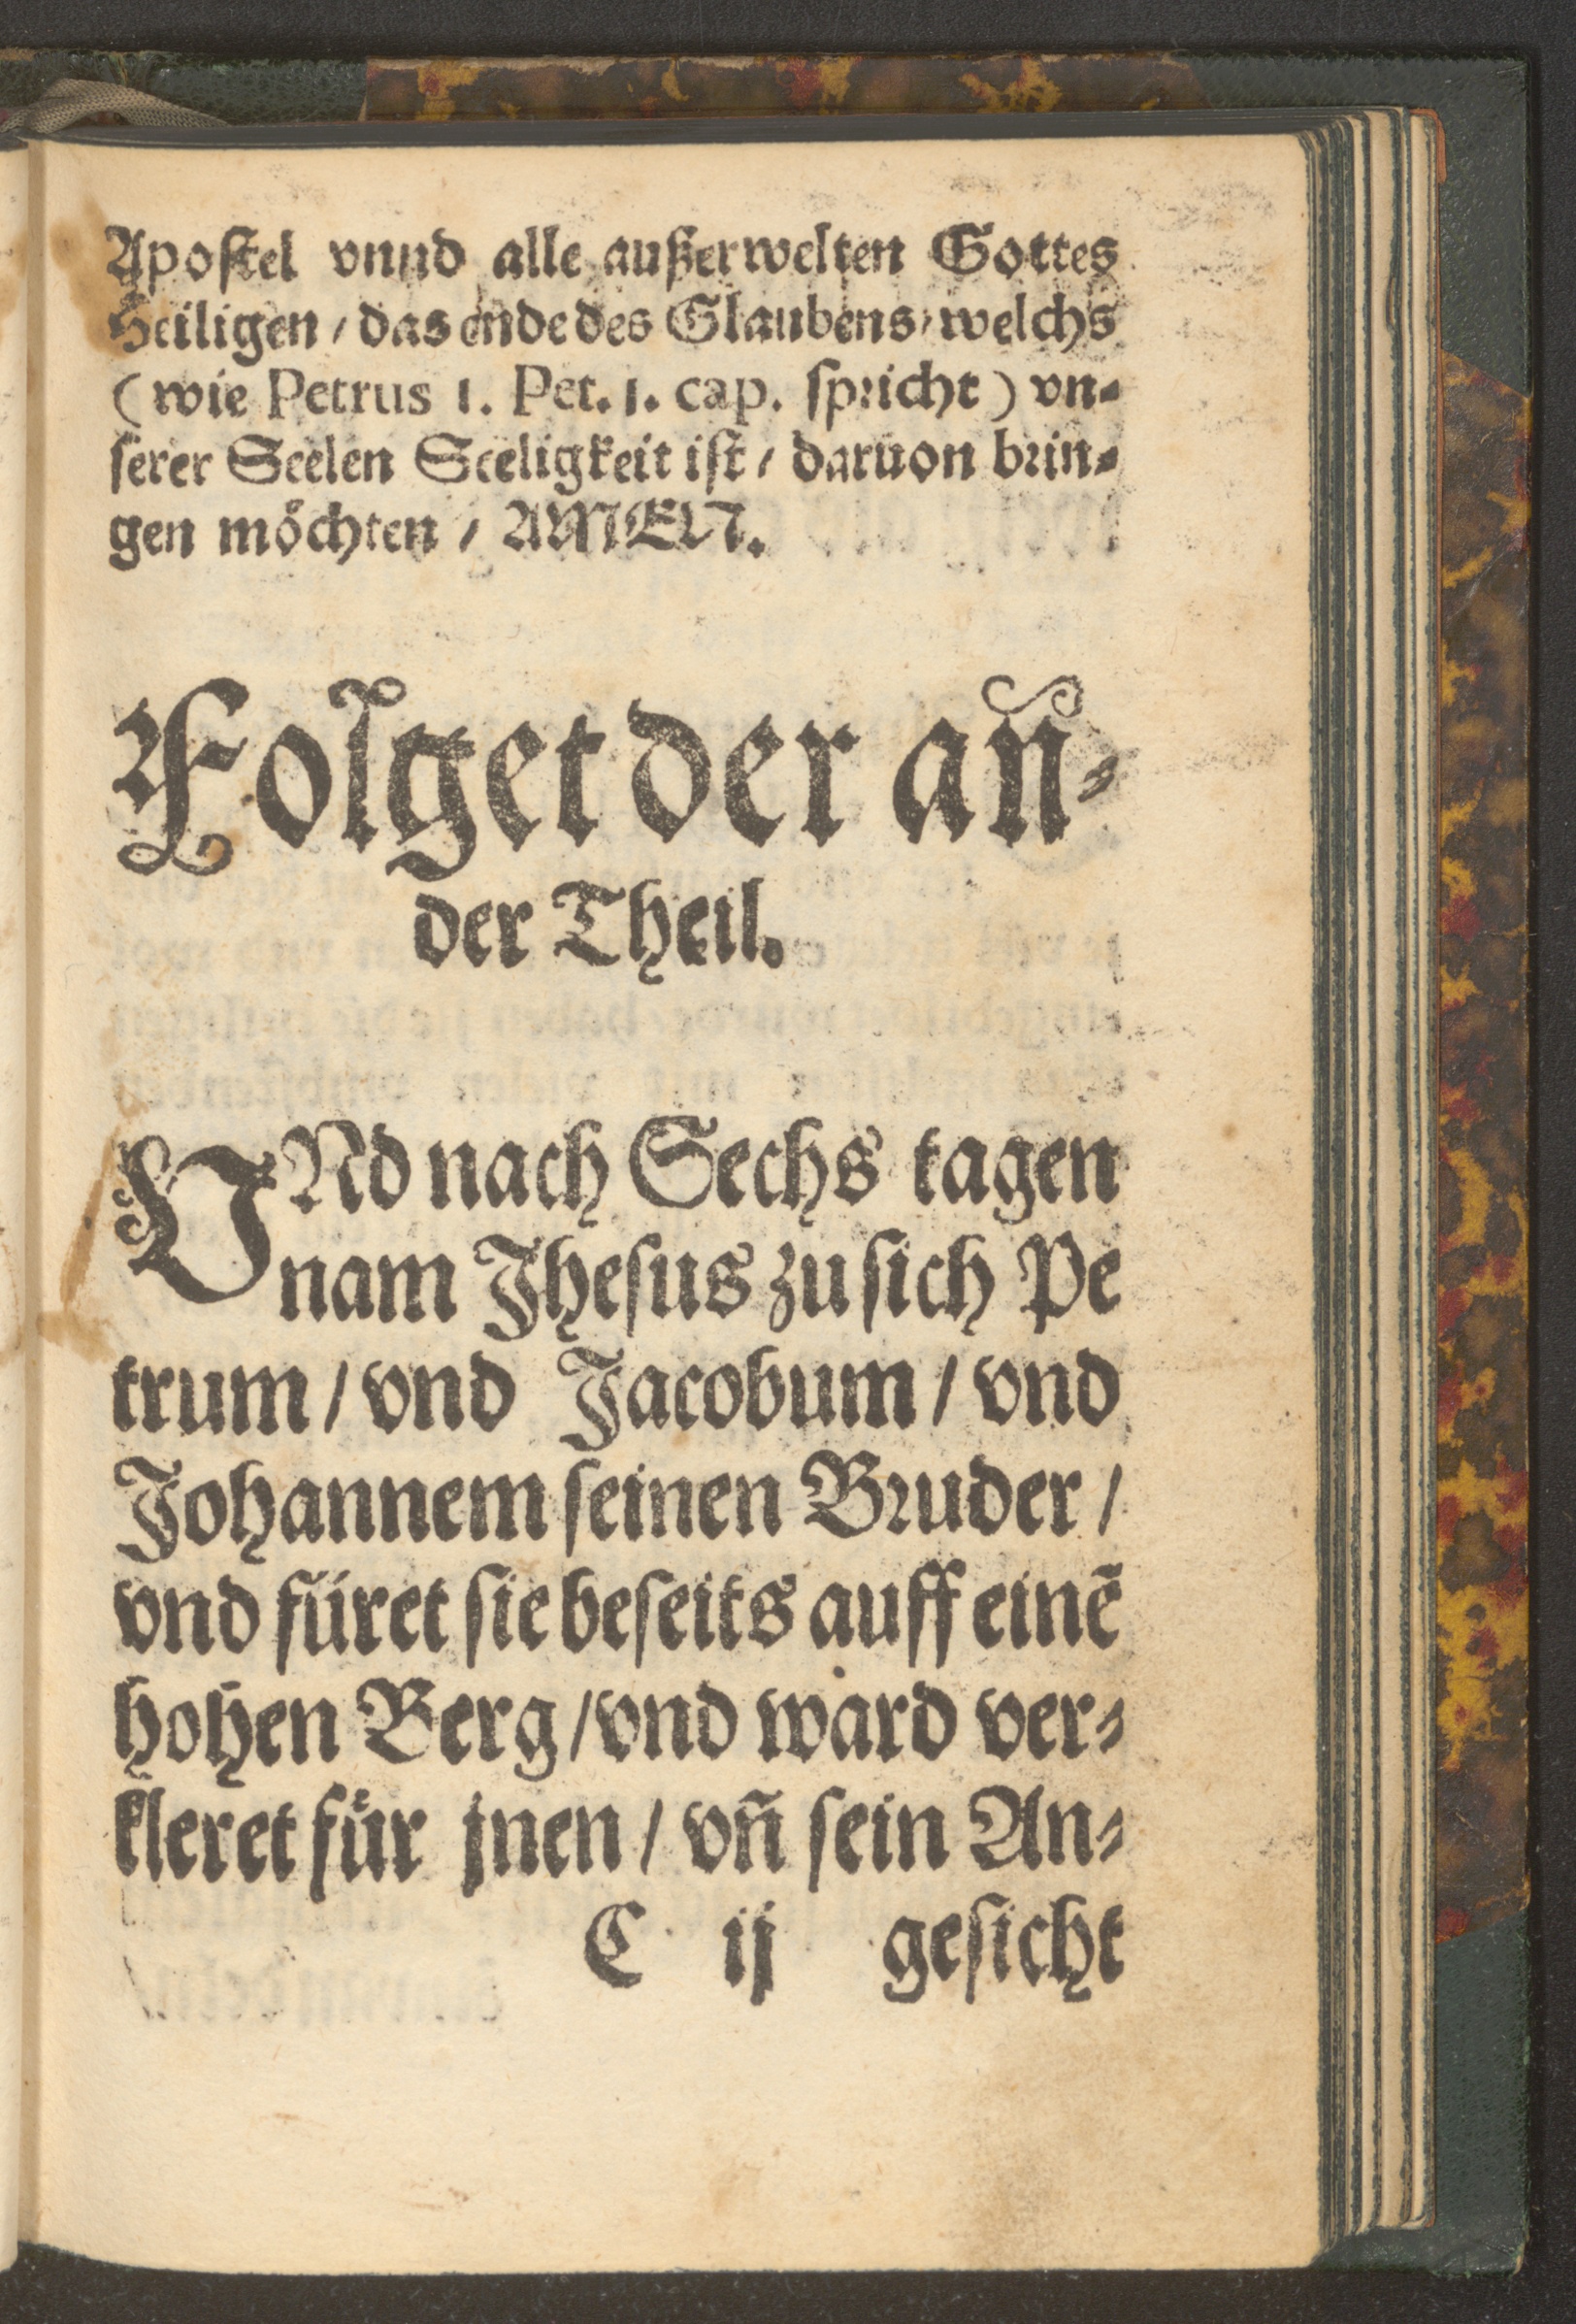 Apostel vnnd alle außerwelten Gottes
Heiligen / das ende des Glaubens / welchs
(wie Petrus 1. Pet. 1. cap. spricht) vn-
serer Seelen Seeligkeit ist / daruon brin-
gen möchten / AMEN.
Folget der an-
der Theil.
VNd nach Sechs tagen
nam Jhesus zu sich Pe
trum / vnd Jacobum / vnd
Johannem seinen Bruder /
vnd füret sie beseits auff einẽ
hohen Berg / vnd ward ver-
kleret für jnen / vñ sein An-
C ij gesicht